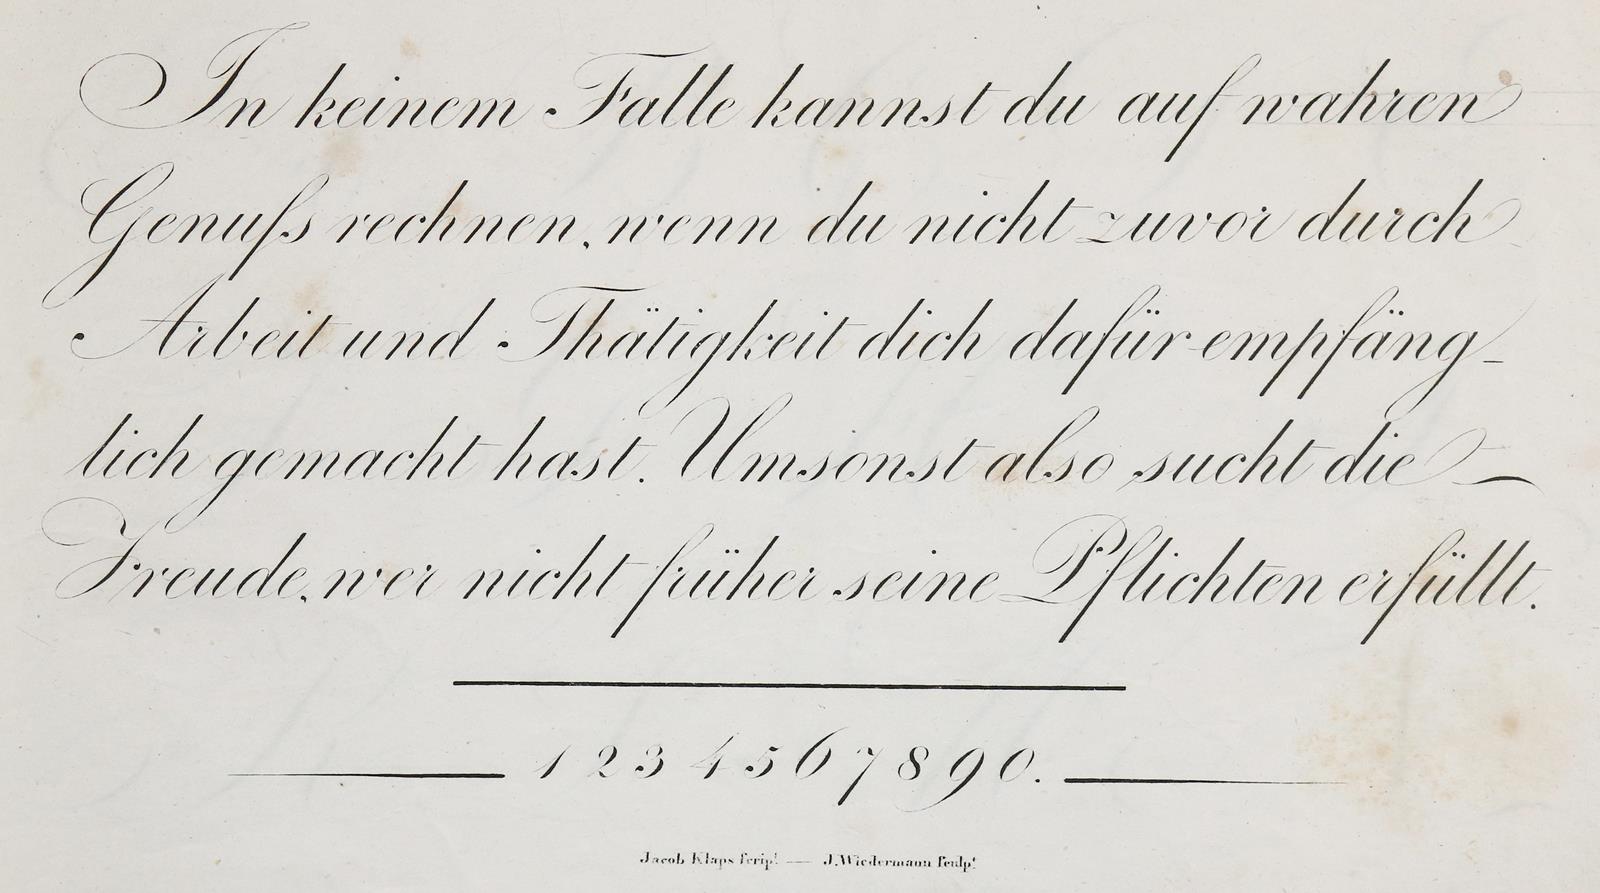 In keinem Falle kannst du auf wahren
Genuſs rechnen, wenn du nicht zuvor durch
Arbeit und Thätigkeit dich dafür empfäng-
lich gemacht hast. Umsonst also sucht die
Freude, wer nicht früher seine Pflichten erfüllt.
1 2 3 4 5 6 7 8 9 0.
Jacob Klaps ſcript. — J. Wiedermann ſculpt